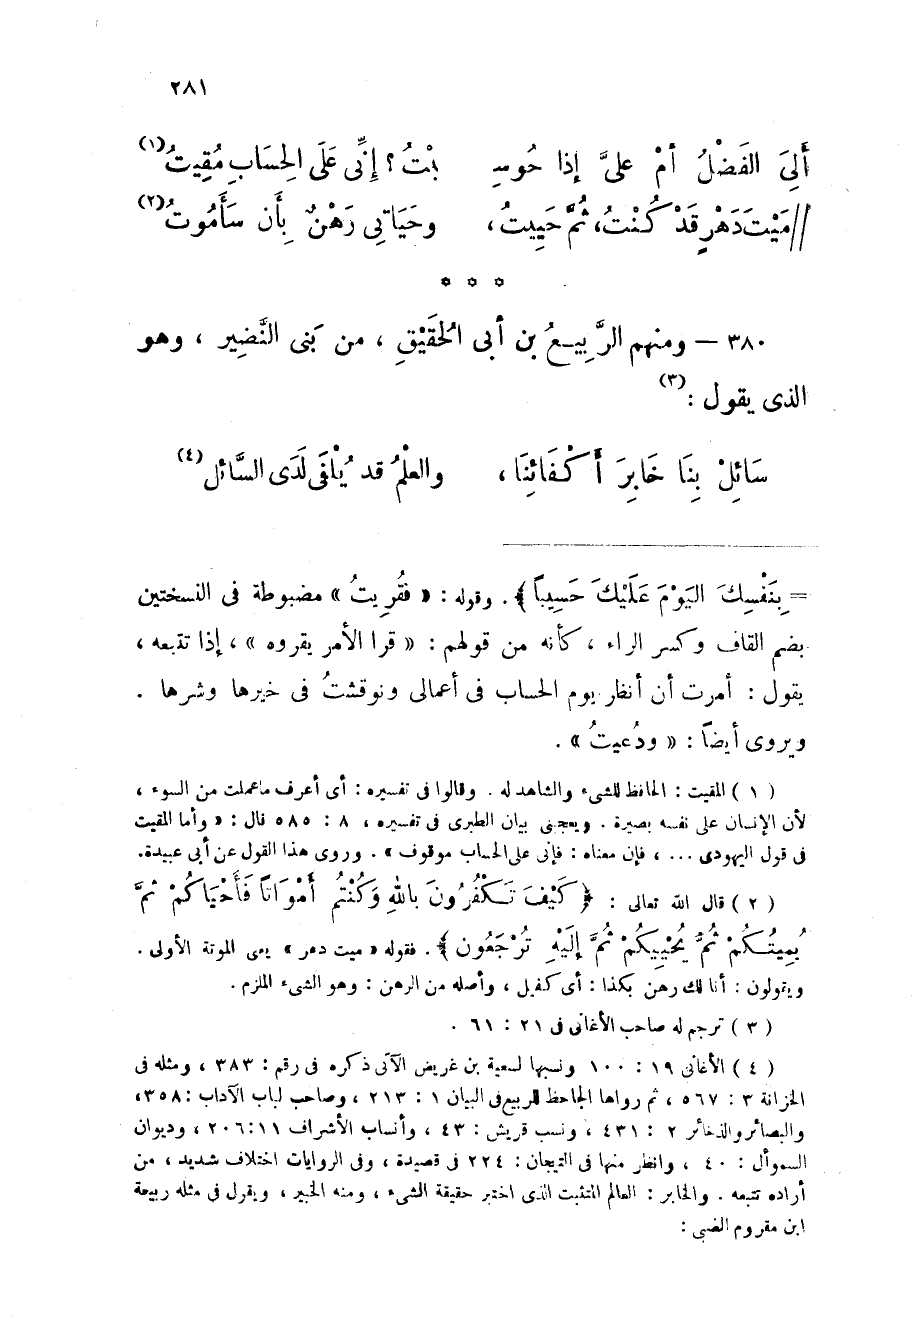 ٢٨١
أَلِىَ الفَضْلُ أمْ علىَّ إذا حُوسِـ بْتُ؟ إِنِّى عَلَى الحِسَابِ مُقِيتُ(١)
//مَيْتَ دَهْرٍ قَدْ كُنْتُ، ثُمَّ حَيِيتُ، وحَيَاتِى رَهْنٌ بِأَن سَأَمُوتُ(٢)
* * *
٣٨٠ — ومنهم الرَّبِيعُ بن أبى الحُقَيْقِ ، من بَنى النَّضِير ، وهو
الذى يقول :(٣)
سَائِلْ بِنَا خَابِرَ أَكْفَائِنَا، والعِلْمُ قد يُلْفَى لَدَى السَّائل(٤)
= بِنَفْسِكَ اليَوْمَ عَلَيْكَ حَسِيباً﴾ . وقوله : « فقُرِيتُ » مضبوطة فى النسختين
بضم القاف وكسر الراء ، كأنه من قولهم : « قرا الأمر يقروه » ، إذا تتبعه ،
يقول : أمرت أن أنظر يوم الحساب فى أعمالى ونوقشتُ فى خيرها وشرها .
ويروى أيضاً : « ودُعيتُ » .
( ١ ) المقيت : الحافظ للشىء والشاهد له . وقالوا فى تفسيره : أى أعرف ماعملت من السوء ،
لأن الإنسان على نفسه بصيرة . ويعجبنى بيان الطبرى فى تفسيره ، ٨ : ٥٨٥ قال : « وأما المقيت
فى قول اليهودى ... ، فإن معناه : فإنى على الحساب موقوف » . وروى هذا القول عن أبى عبيدة.
( ٢ ) قال الله تعالى : ﴿ كَيْفَ تَكْفُرُونَ بِاللهِ وَكُنْتُمْ أَمْوَاتاً فَأَحْيَاكُمْ ثمَّ
يُمِيتُكُمْ ثُمَّ يُحْيِيكُمْ ثُمَّ إِلَيْهِ تُرْجَعُون ﴾ . فقوله « ميت دهر » يعى الموتة الأولى .
ويقولون : أنا لك رهن بكذا : أى كفيل ، وأصله من الرهن : وهو الشىء الملزم .
( ٣ ) ترجم له صاحب الأغانى فى ٢١ : ٦١ .
( ٤ ) الأغانى ١٩ : ١٠٠ ونسبها لسعية بن غريض الآتى ذكره فى رقم : ٣٨٣ ، ومثله فى
الخزانة ٣ : ٥٦٧ ، ثم رواها الجاحظ للربيع فى البيان ١ : ٢١٣ ، وصاحب لباب الآداب : ٣٥٨،
والبصائر والذخائر ٢ : ٤٣١ ، ونسب قريش : ٤٣ ، وأنساب الأشراف ١١ : ٢٠٦ ، وديوان
السموأل : ٤٠ ، وانظر منها فى التيجان : ٢٢٤ فى قصيدة ، وفى الروايات اختلاف شديد ، من
أراده تتبعه . والخابر : العالم المتثبت الذى اختبر حقيقة الشىء ، ومنه الخبير ، ويقول فى مثله ربيعة
ابن مقروم الضبى :